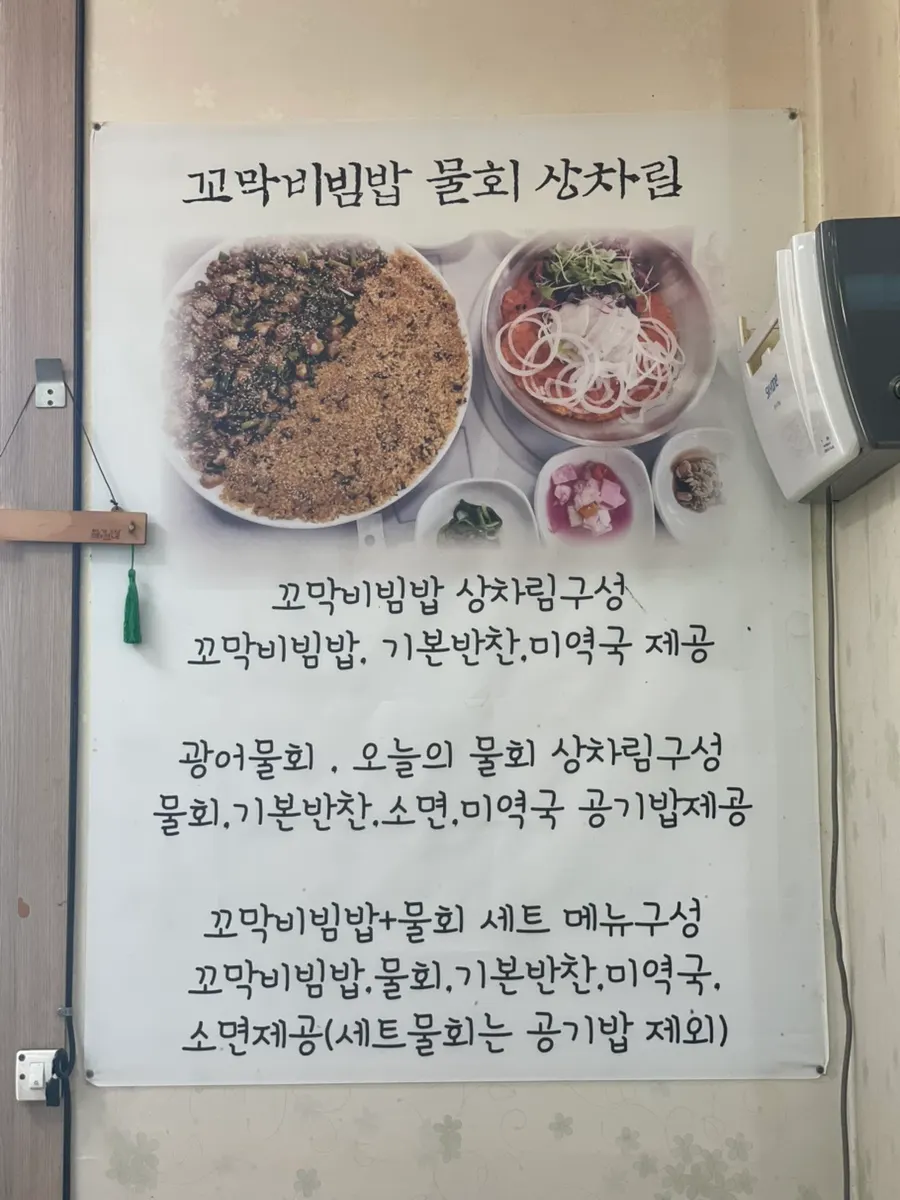 꼬막비빔밥 물회 상차림
꼬막비빔밥 상차림구성
꼬막비빔밥. 기본반찬.미역국 제공
광어물회 . 오늘의 물회 상차림구성
물회.기본반찬.소면.미역국 공기밥제공
꼬막비빔밥+물회 세트 메뉴구성
꼬막비빔밥.물회.기본반찬.미역국.
소면제공(세트물회는 공기밥 제외)